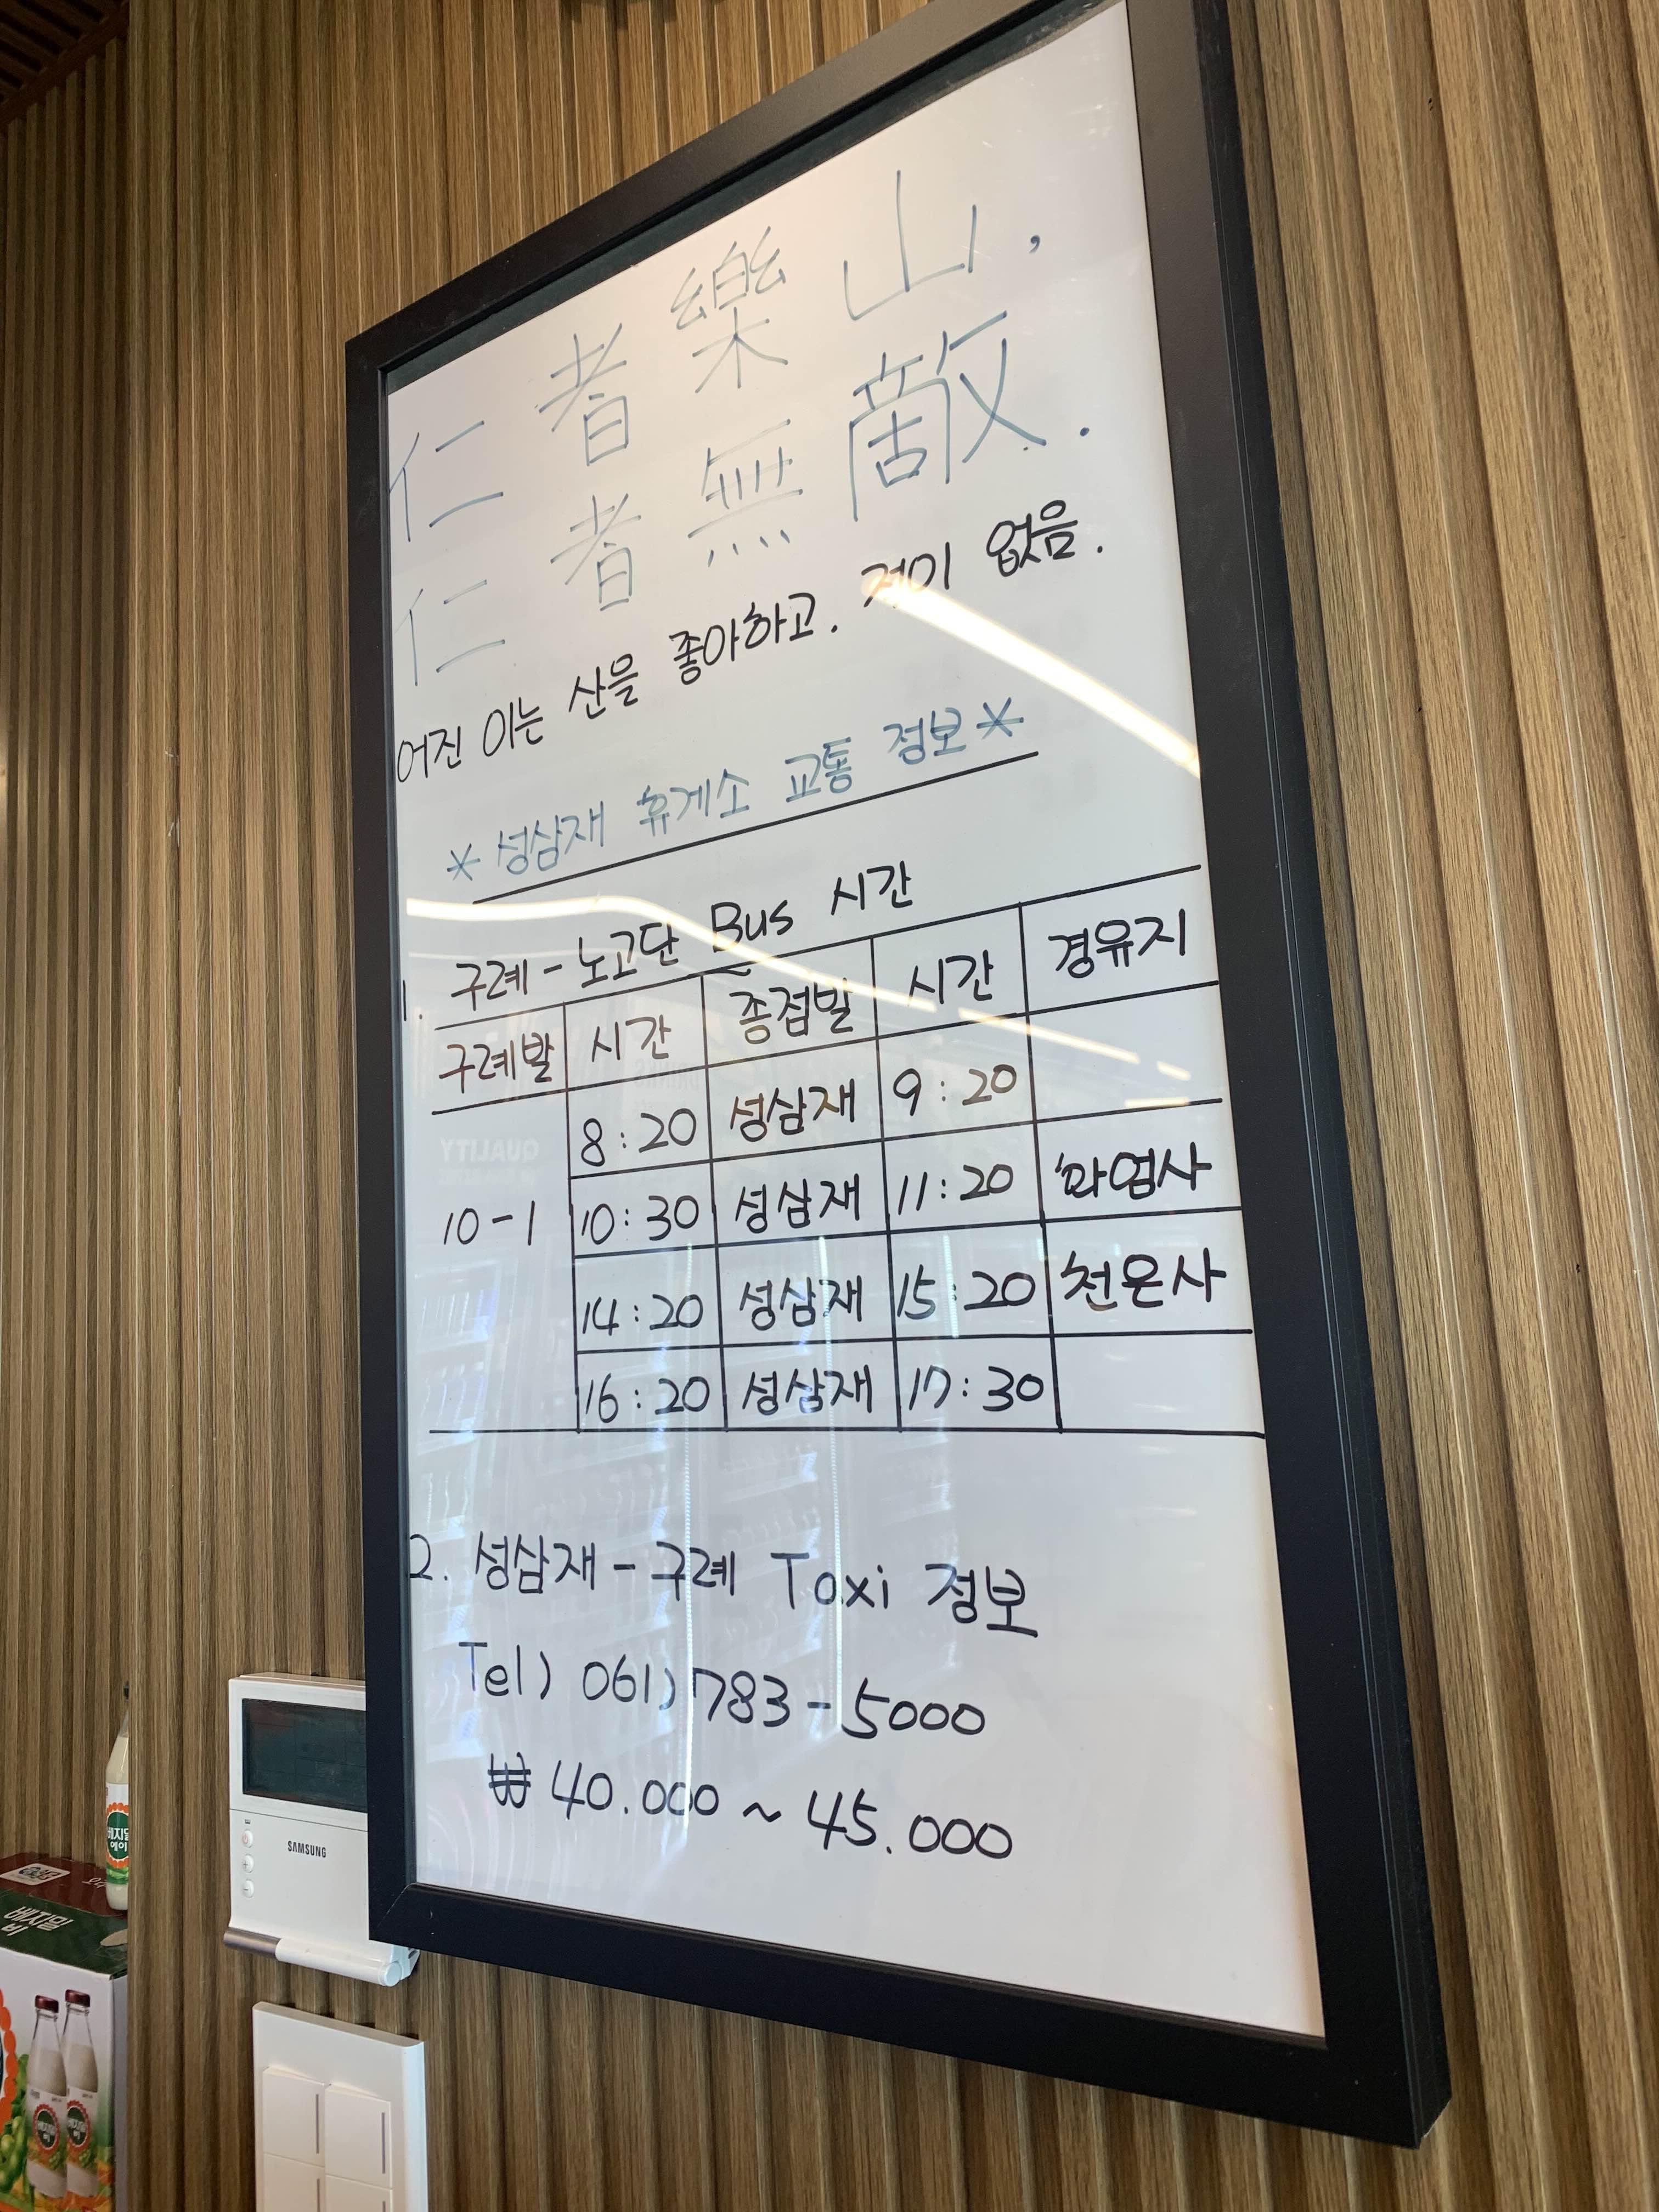 仁者樂山,
仁者無敵.
어진 이는 산을 좋아하고. 적이 없음.
* 성삼재 휴게소 교통 정보 *
1. 구례 - 노고단 Bus 시간
구례발 시간 종점발 시간 경유지
8:20 성삼재 9:20
10-1 10:30 성삼재 11:20 화엄사
14:20 성삼재 15:20 천은사
16:20 성삼재 17:30
2. 성삼재 - 구례 Taxi 정보
Tel) 061) 783-5000
₩ 40.000 ~ 45.000
SAMSUNG
베지밀
에이
베지밀
비